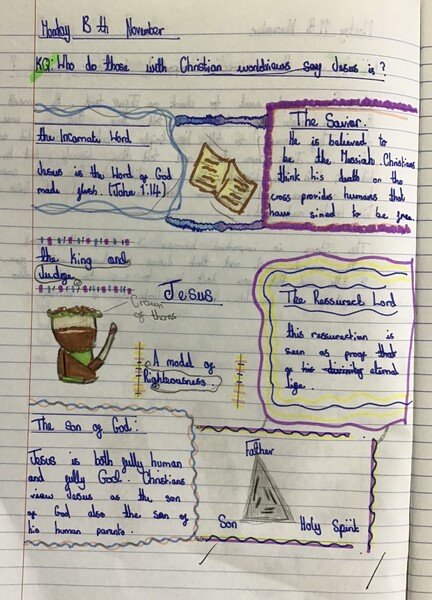 Monday 13 th November
KQ: Who do those with Christian worldviews say Jesus is?
the Incarnate Word
Jesus is the Word of God
made flesh. (John 1:14)
The Savior.
He is believed to
be the Messiah. Christians
think his death on the
cross provides humans that
have sined to be free.
the king and
Judge.
Crown
of thorns
Jesus
A model of
Righteousness
The Ressurect Lord
this resurection is
seen as proof that
of his divinity eternal
life.
The Son of God:
Jesus is both fully human
and fully God. Christians
view Jesus as the son
of God also the son of
his human parents.
Father
Son
Holy Spirit